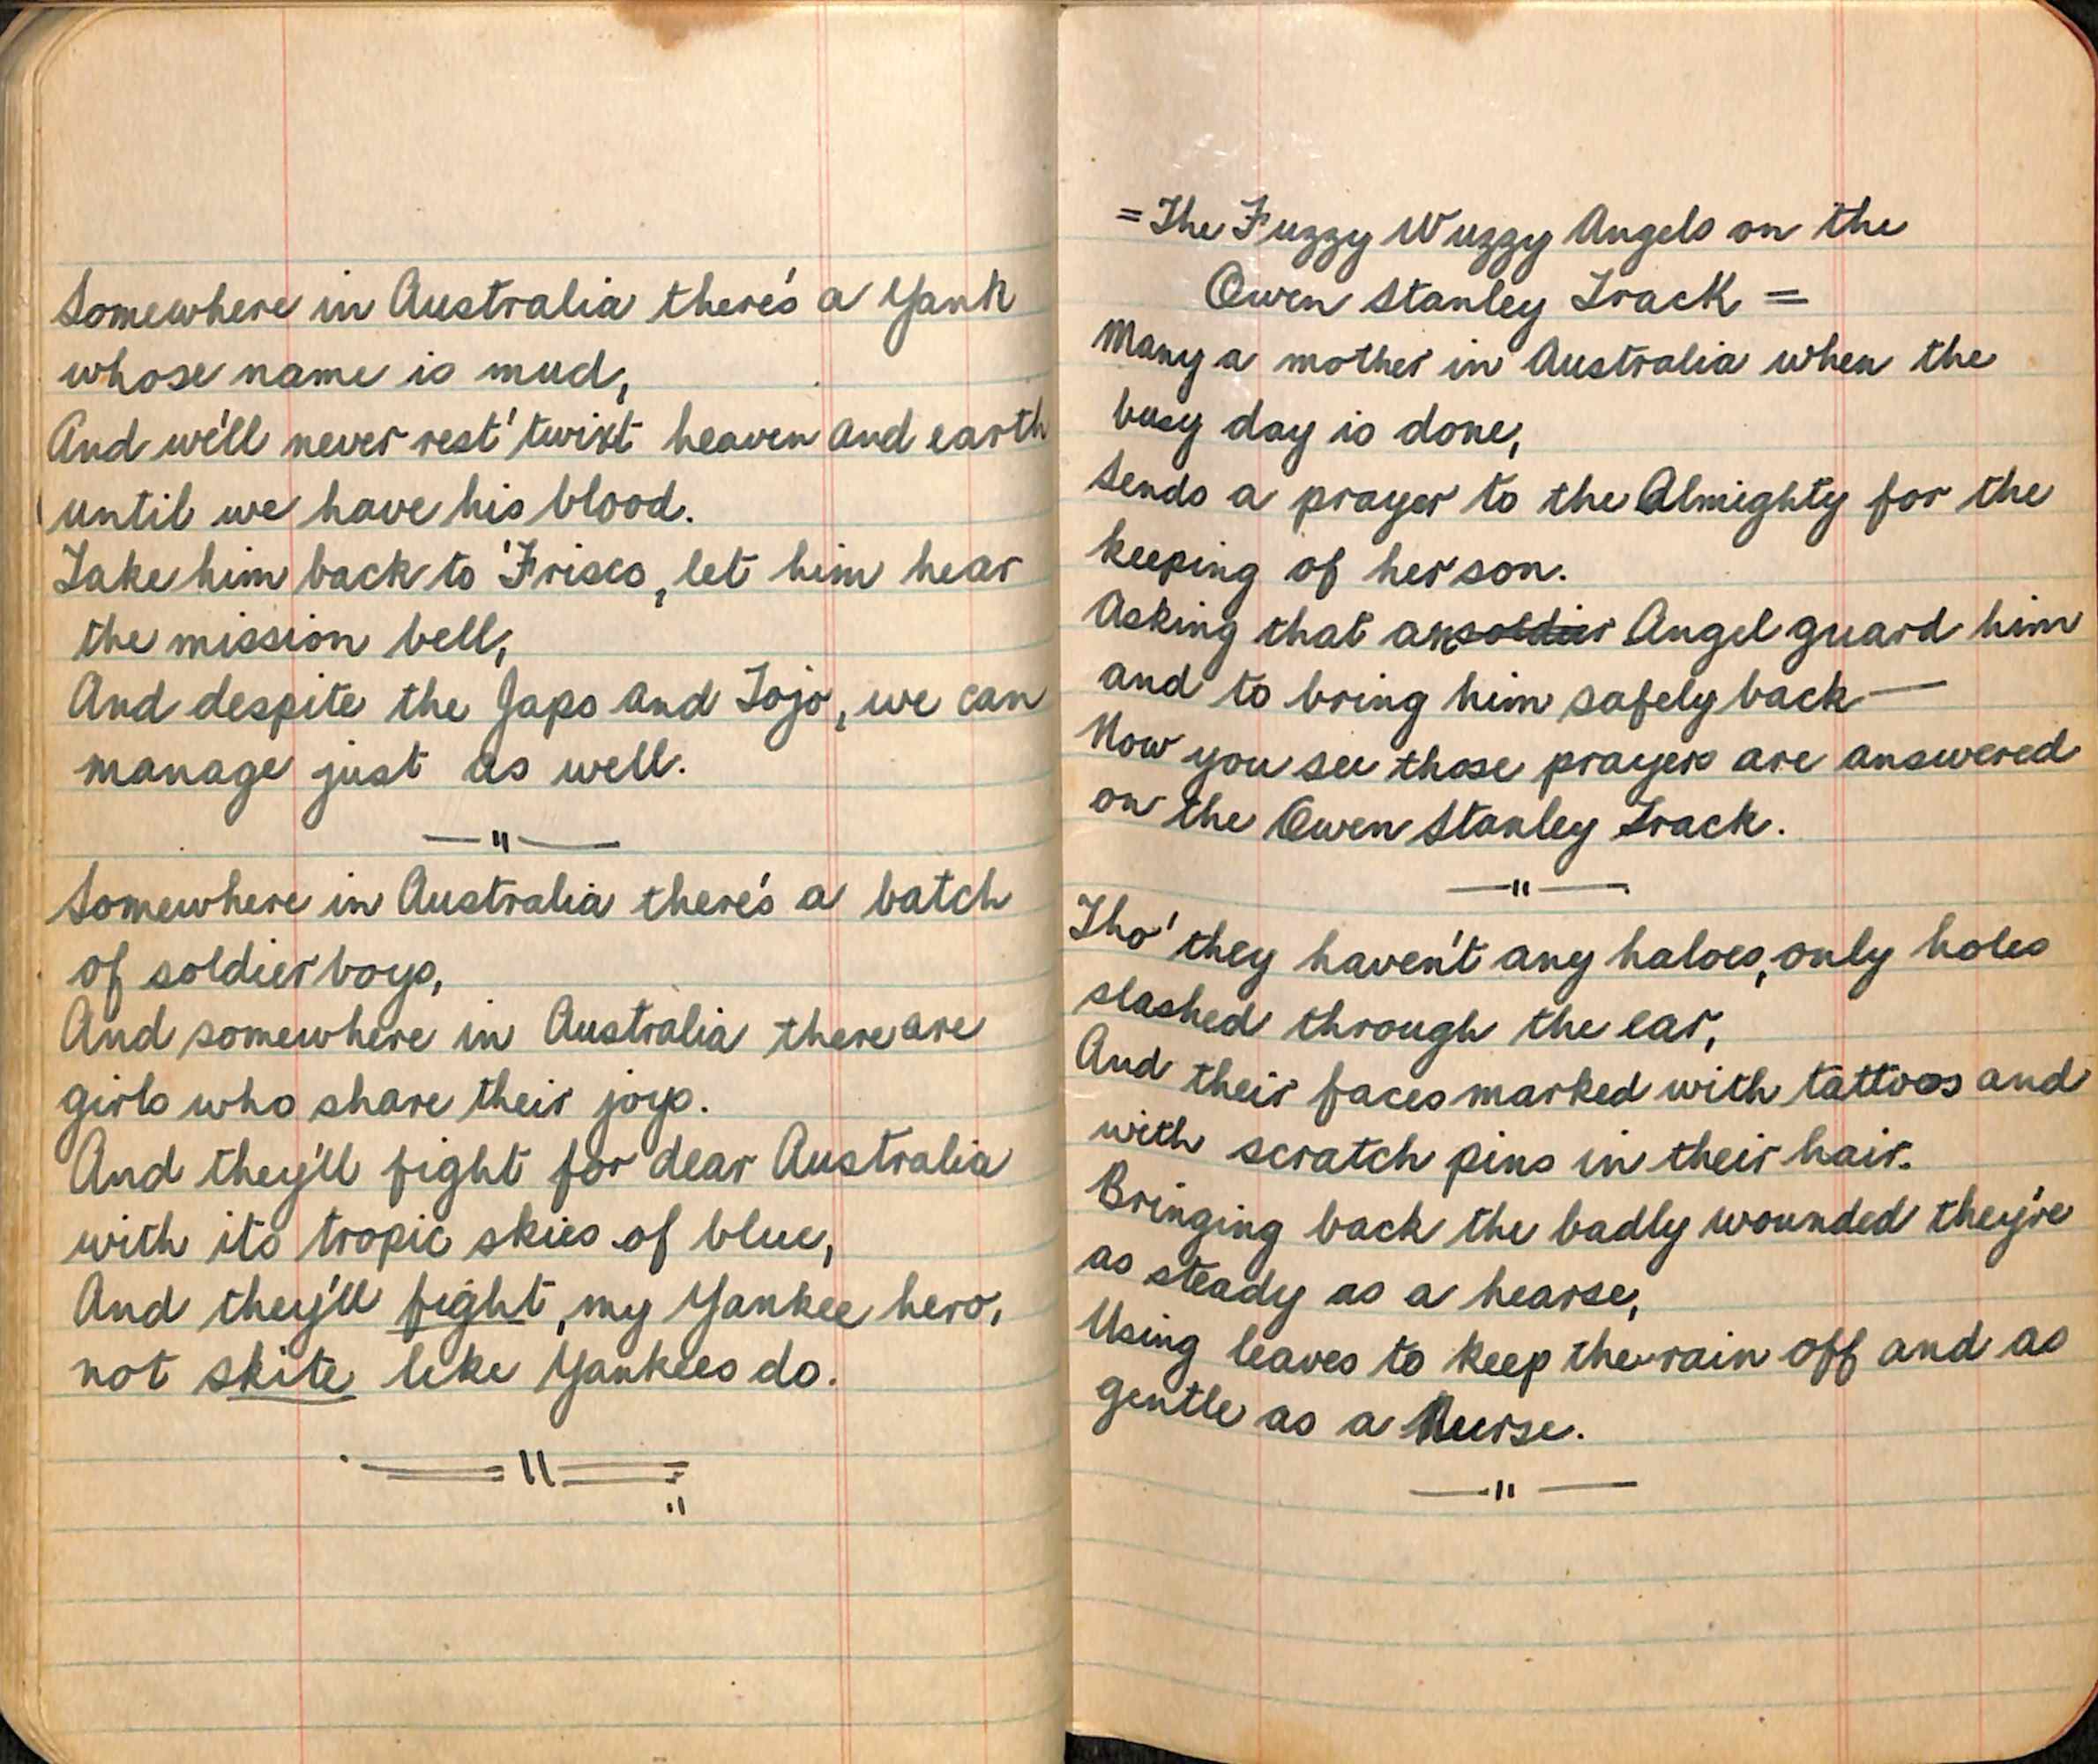 Somewhere in Australia there's a Yank
whose name is mud,
And we'll never rest 'twixt heaven and earth
until we have his blood.
Take him back to 'Frisco, let him hear
the mission bell,
And despite the Japs and Tojo, we can
manage just as well.
— " —
Somewhere in Australia there's a batch
of soldier boys,
And somewhere in Australia there are
girls who share their joys.
And they'll fight for dear Australia
with its tropic skies of blue,
And they'll fight, my Yankee hero,
not skite like Yankees do.
= The Fuzzy Wuzzy Angels on the
Owen Stanley Track =
Many a mother in Australia when the
busy day is done,
Sends a prayer to the Almighty for the
keeping of her son.
Asking that an soldier Angel guard him
and to bring him safely back —
Now you see those prayers are answered
on the Owen Stanley Track.
— " —
Tho' they haven't any haloes, only holes
slashed through the ear,
And their faces marked with tattoos and
with scratch pins in their hair.
Bringing back the badly wounded they're
as steady as a hearse,
Using leaves to keep the rain off and as
gentle as a Nurse.
— " —